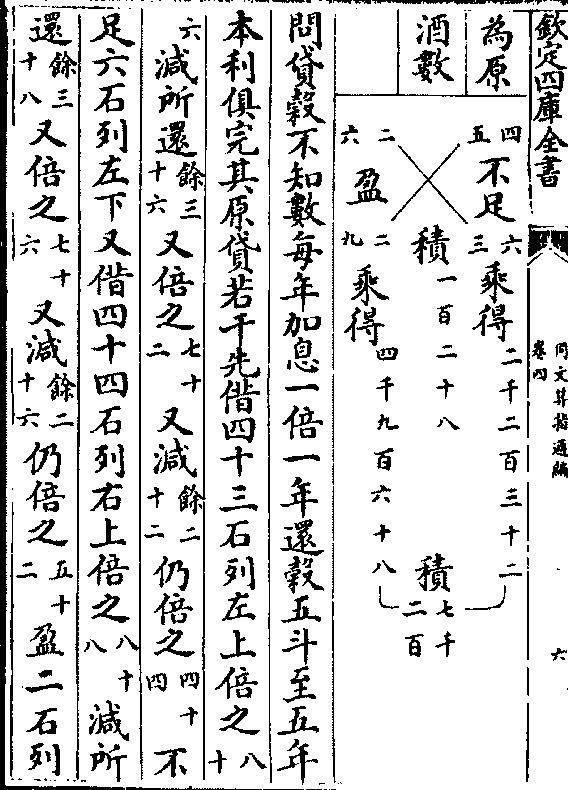 欽定四庫全書
同文算指通編
卷四
六
為原
酒數
五四
不足
三六
乘得
二千二百三十二
積
一百二十八
積
七千
二百
六二
盈
九二
乘得
四千九百六十八
問貸穀不知數每年加息一倍一年還穀五斗至五年
本利俱完其原貸若干先借四十三石列左上倍之八十
六減所還餘三十六又倍之七十二又減餘二十二仍倍之四十四不
足六石列左下又借四十四石列右上倍之八十八減所
還餘三十八又倍之七十六又減餘二十六仍倍之五十二盈二石列